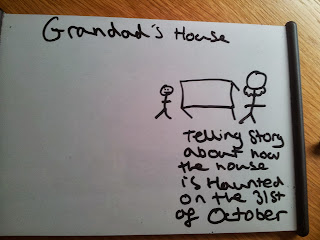 Grandad's House
Telling Story
about how
the house
is Haunted
on the 31st
of October